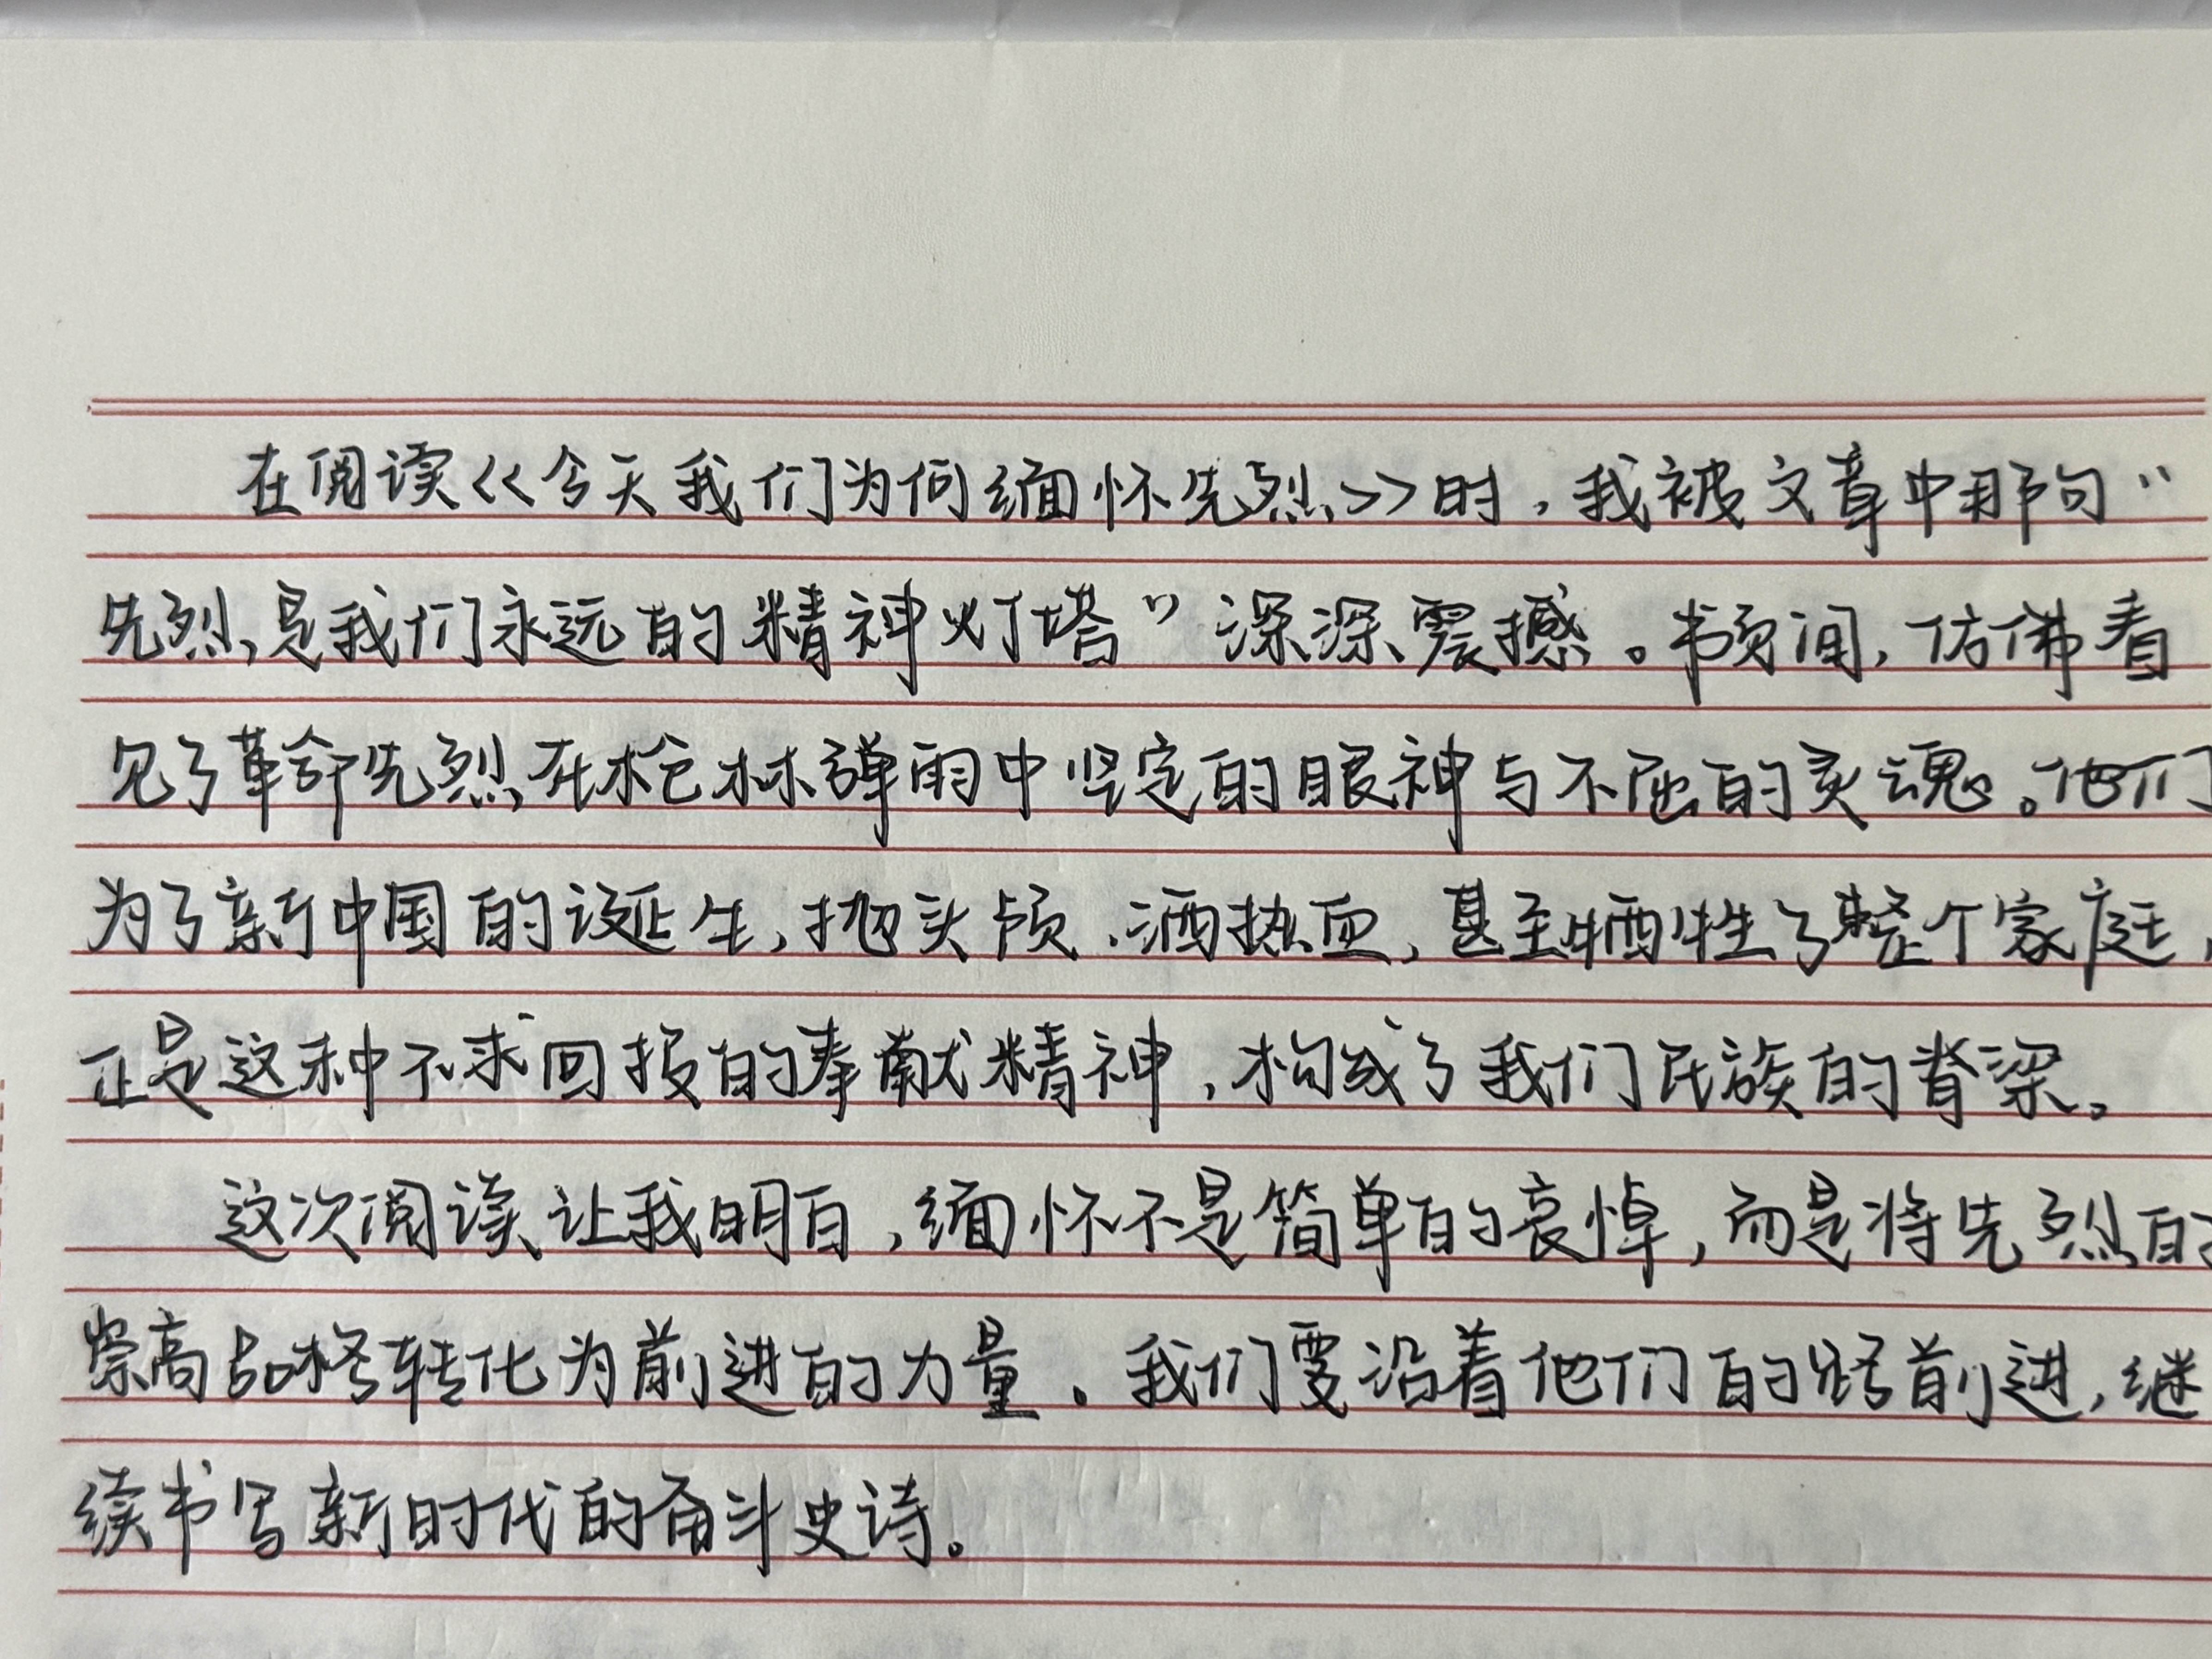 在阅读《今天我们为何缅怀先烈》时，我被文章中那句“
先烈是我们永远的精神灯塔”深深震撼。书页间，仿佛看
见了革命先烈在枪林弹雨中坚定的眼神与不屈的灵魂。他们
为了新中国的诞生，抛头颅、洒热血，甚至牺牲了整个家庭，
正是这种不求回报的奉献精神，构成了我们民族的脊梁。
这次阅读让我明白，缅怀不是简单的哀悼，而是将先烈的
崇高品格转化为前进的力量。我们要沿着他们的路前进，继
续书写新时代的奋斗史诗。